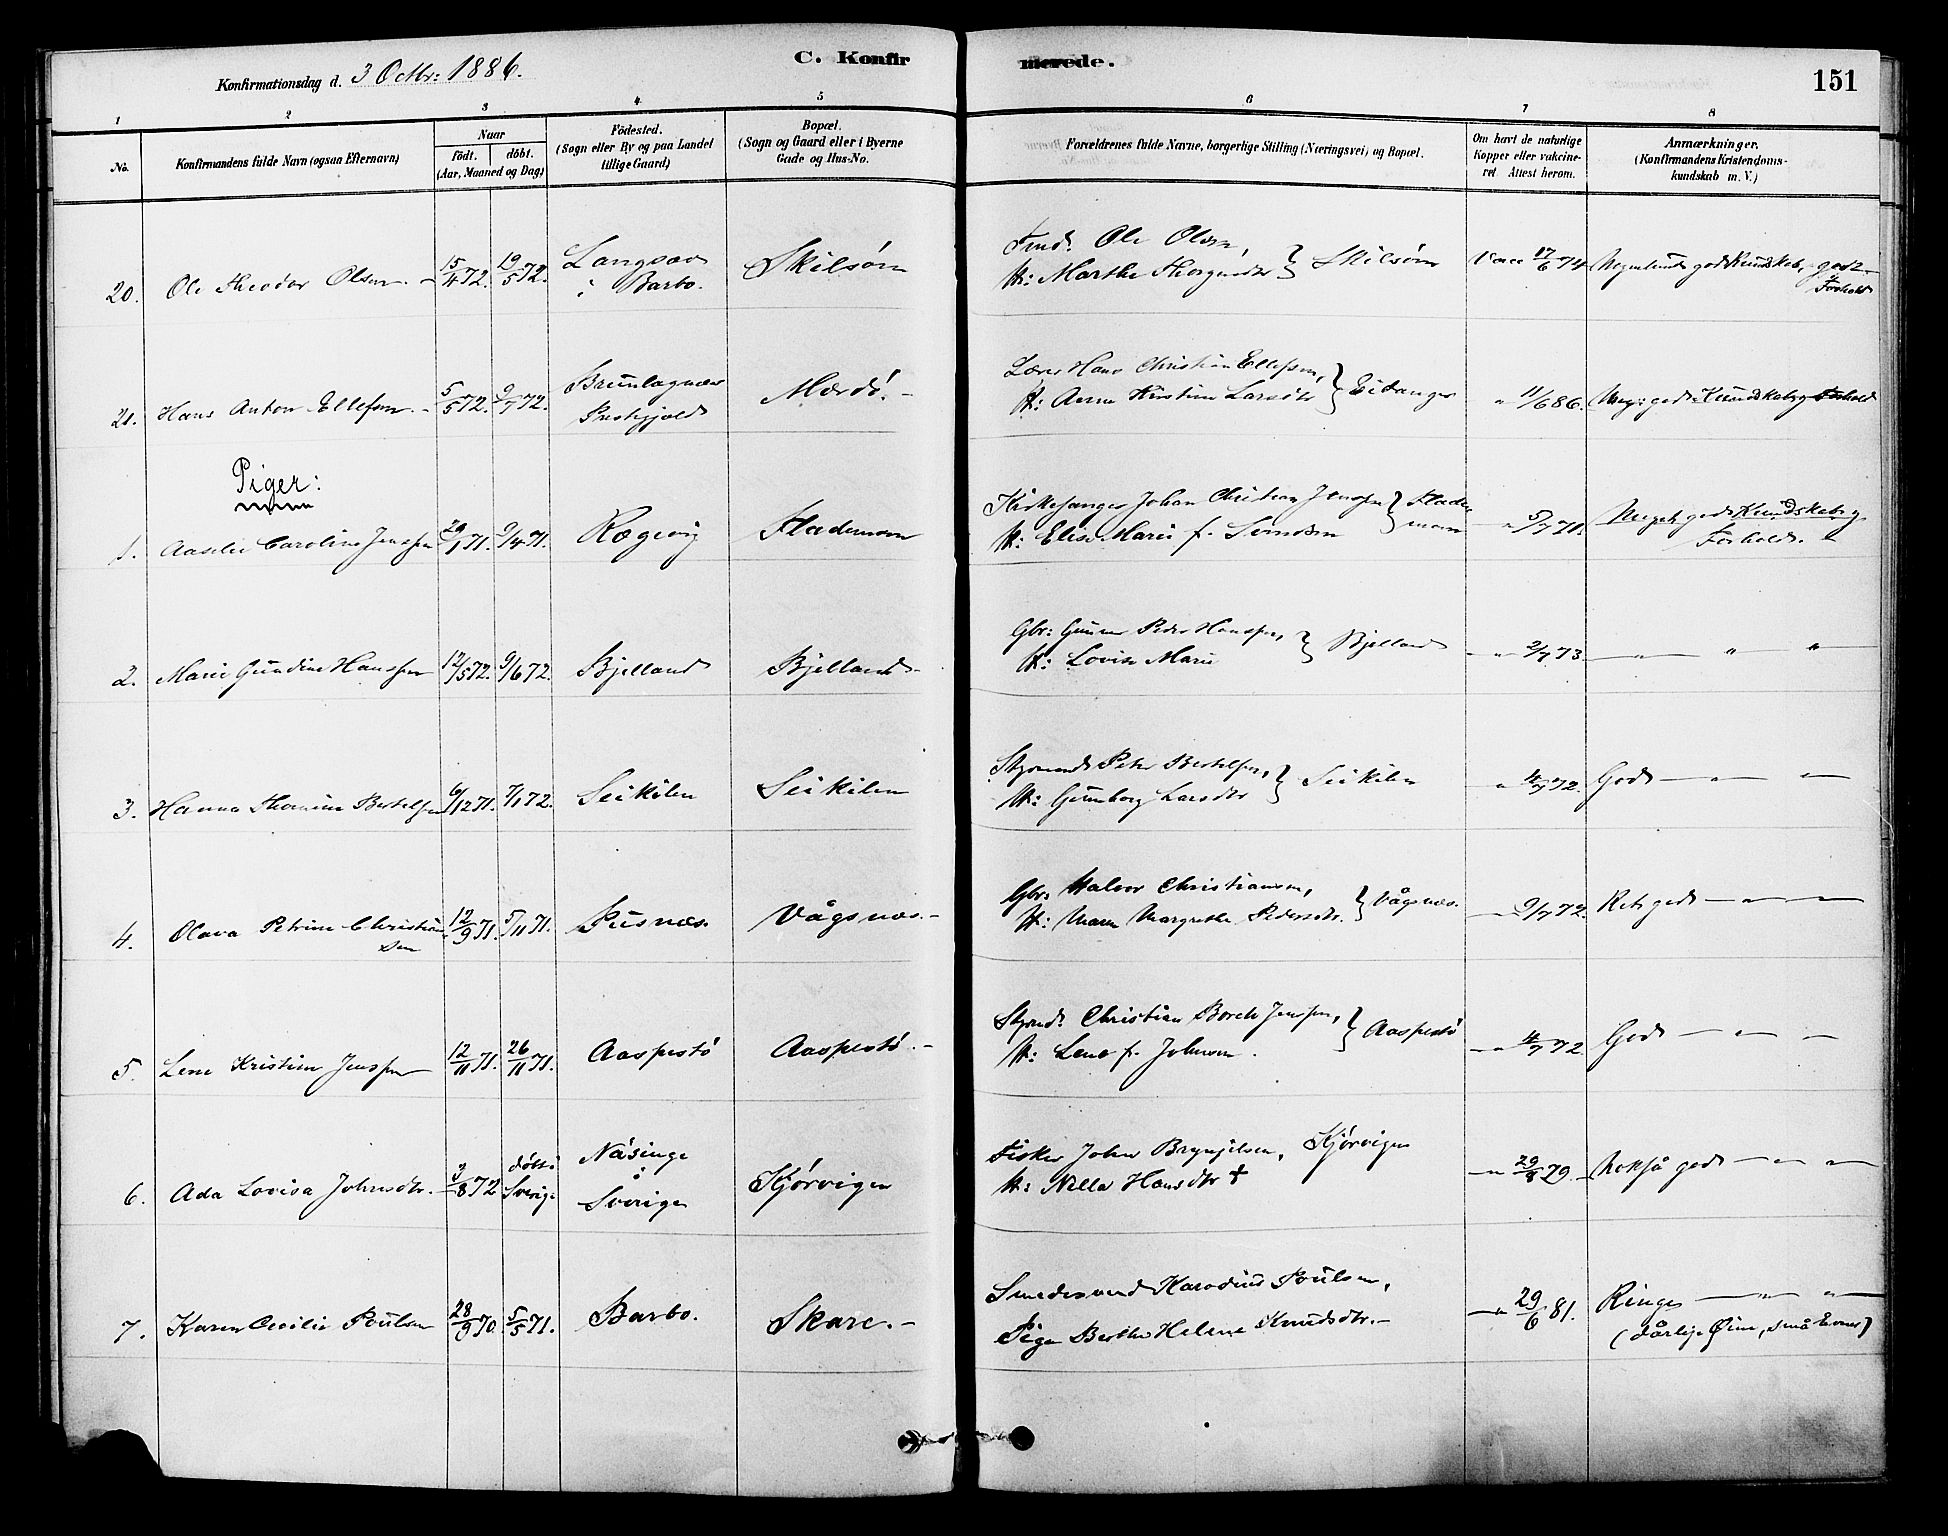 Konfirmationsdag d. 3 Octbr: 1886.
C. Konfirmerede.
151
1 2 3 4 5 6 7 8
No.
Konfirmandens fulde Navn (ogsaa Efternavn)
Naar
födt. döbt.
(Aar, Maaned og Dag)
Födested.
(Sogn eller By og paa Landet
tillige Gaard)
Bopæl.
(Sogn og Gaard eller i Byerne
Gade og Hus-No.
Forældrenes fulde Navne, borgerlige Stilling (Næringsvei) og Bopæl.
Om havt de naturlige
Kopper eller vakcine-
ret Attest herom.
Anmærkninger.
(Konfirmandens Kristendoms-
kundskab m. V.)
20. Ole Theodor Olsen 15/4 72. 19/5 72. Langsæv
i Barbo. Skilsøen
Ole Olsen,
H: Marthe } Skilsøen
Vacc 17/6 74
Megetends god Kundskab, godt
Forhold
21. Hans Anton Ellefsen 5/5 72. 9/7 72. Brunlagnæs
Prestgjeld Mærdö.
Hans Christian Ellefsen,
H: Anne Kirstine Larsdtr } Eidanger
" 11/6 86.
Meg: god Kundskab og Forhold
Piger:
1. Aaselie Caroline Jenssen 29/1 71. 9/4 71. Kogevig Flademoen
Kirkesanger Johan Christian Jenssen
H: Elise Marie f. Svendsen } Flade
moen
" 5/7 71.
Meget god Kundskab og
Forhold.
2. Marie Gundine Hanssen 12/5 72. 9/6 72. Bjelland Bjelland
Gbr: Gunner Peder Hanssen,
H: Lovise Marie } Bjelland
" 2/7 73 " " "
3. Hanna Thomine Bertelsen 6/12 71. 7/1 72. Seikilen Seikilen
Styrmand Peter Bertelsen,
H: Gunborg Larsdtr } Seikilen
" 4/7 72. God " "
4. Olava Petrine Christian
sen 12/9 71. 5/11 71. Pusnæs. Vågsnæs.
Gbr: Halvor Christiansen,
H: Maren Margrethe Pedersdtr. } Vågsnæs.
" 9/7 72. Ret god " "
5. Lene Kristine Jenssen 12/11 71. 26/11 71. Aaspestö Aaspestö.
Styrmd. Christian Jenssen,
H: Lene f. Johnsen. } Aaspestö
" 4/7 72 God " "
6. Ada Lovisa Johnsdtr. 3/8 72 døbt i
Sverige Näsinge
i
Sverige Kjörvigen
Fisker John Brynjelsen, Kjörvigen
H: Nilla Hansdtr †
" 29/8 79. Nokså god " "
7. Karen Cecilie Poulsen 28/9 70. 5/5 71. Barbo. Skare.
Smedesvend Poulsen,
Pige Berthe Helene Knudsdtr.
" 29/6 81. Ringe " "
(dårlige Øine, små Evner)